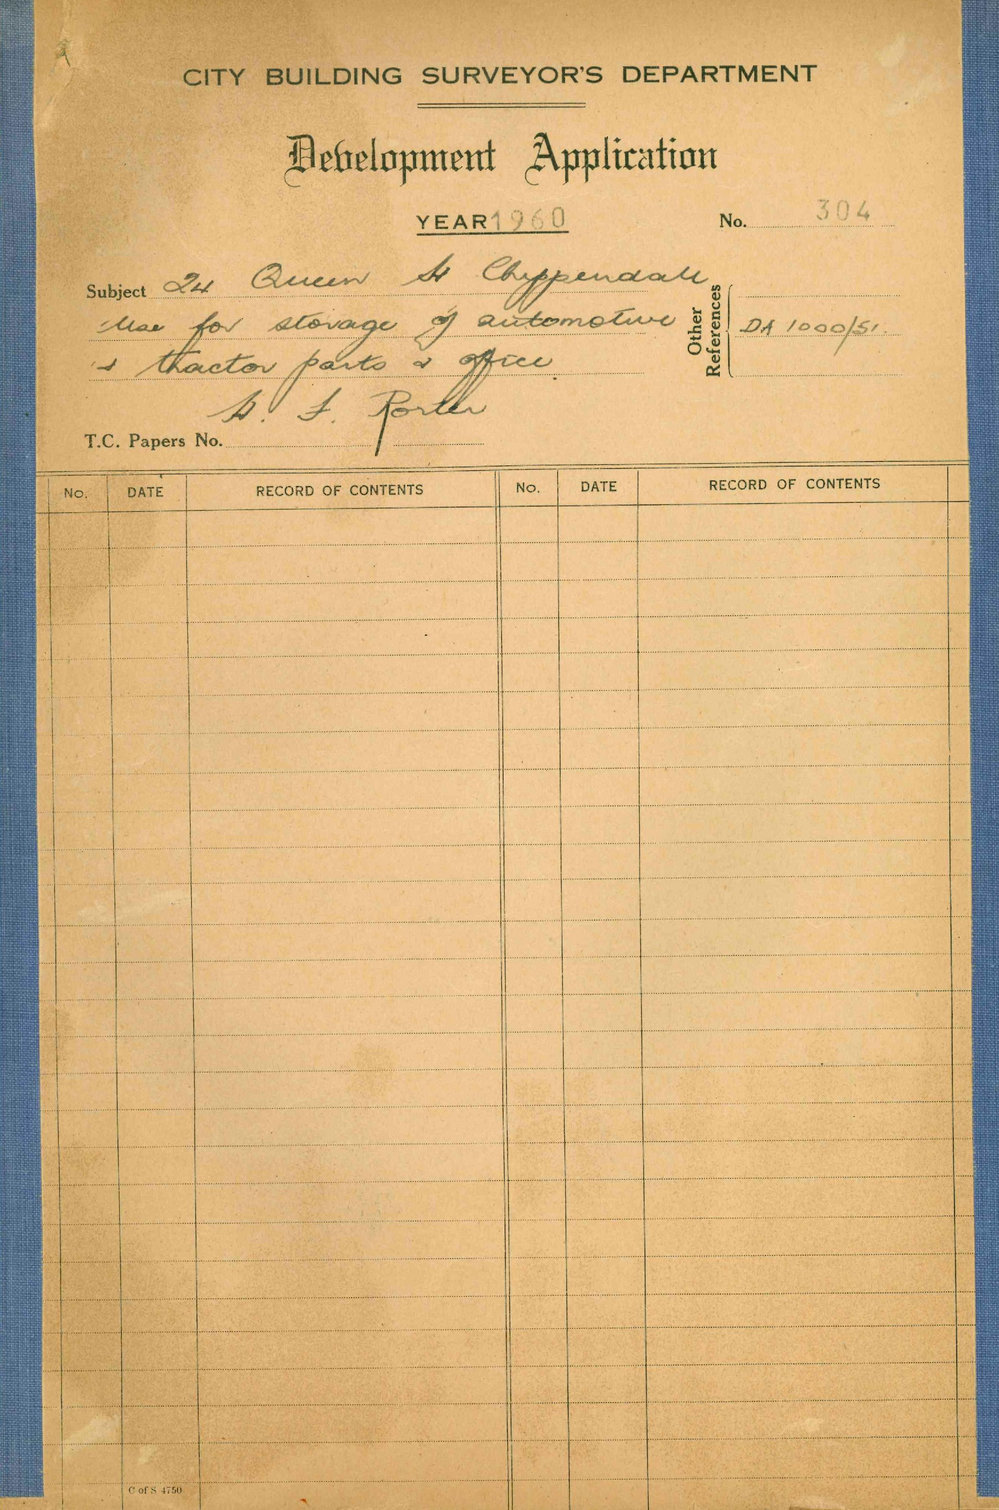 CITY BUILDING SURVEYOR'S DEPARTMENT
Development Application
YEAR 1960
No. 304
Subject 24 Queen St Chippendale
Use for storage of automotive
& tractor parts & office
F. Porter
Other References
DA 1000/51.
T.C. Papers No.
No. DATE RECORD OF CONTENTS No. DATE RECORD OF CONTENTS
C of S 4750